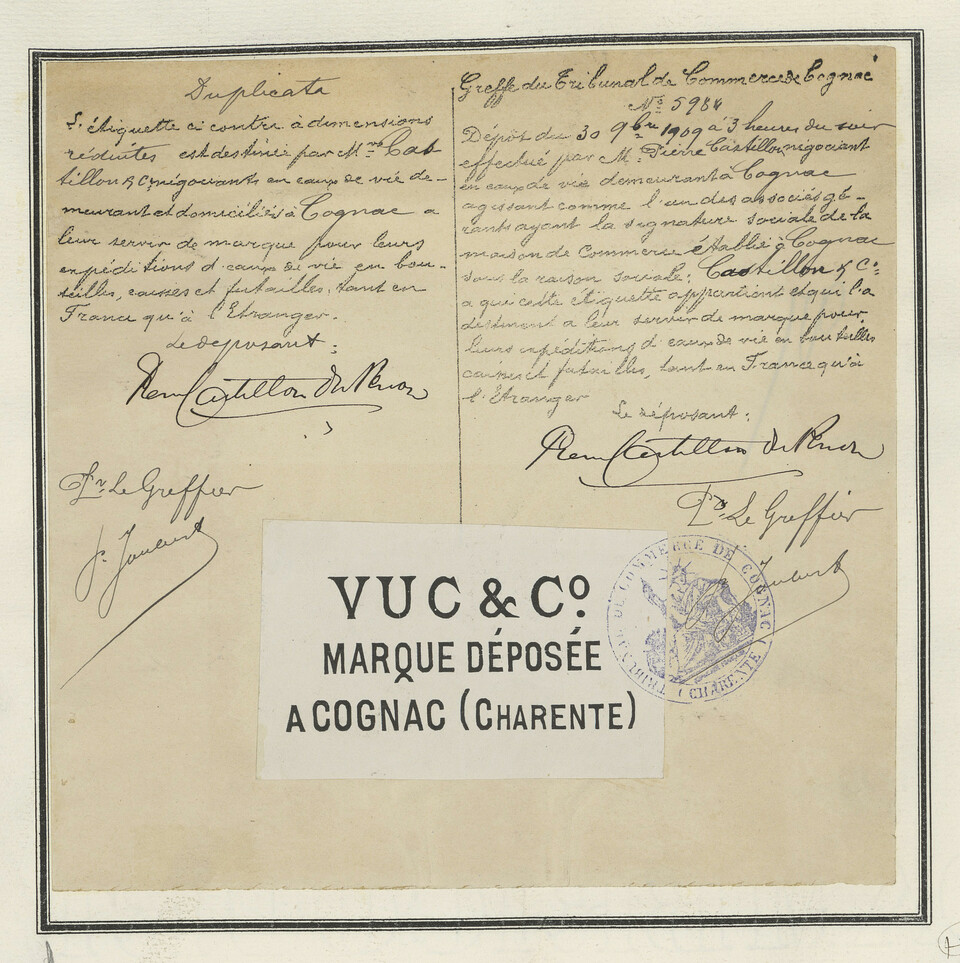 Duplicata
L'étiquette ci contre à dimensions
réduites est destinée par Mrs Cas
tillon & Co négociants en eaux de vie de-
meurant et domiciliés à Cognac a
leur servir de marque pour leurs
expéditions d'eaux de vie en bou-
teilles, caisses et futailles, tant en
France qu'à l'Etranger.
Le déposant:
Castillon du Perron
Pr Le Greffier
Greffe du Tribunal de Commerce de Cognac
No 5984
Dépôt du 30 9bre 1909 à 3 heures du soir
effectué par M. Pierre Castillon, négociant
en eaux de vie demeurant à Cognac
agissant comme l'un des associés gé-
rants ayant la signature sociale de la
maison de Commerce établie à Cognac
sous la raison sociale: Castillon & Co
a qui cette étiquette appartient et qui l'a
destinent a leur servir de marque pour
leurs expéditions d'eaux de vie en bouteilles
caisses et futailles, tant en France qu'à
l'Etranger
Le déposant:
Castillon du Perron
Pr Le Greffier
VUC & Co
MARQUE DÉPOSÉE
A COGNAC (CHARENTE)
TRIBUNAL DE COMMERCE DE COGNAC
(CHARENTE)